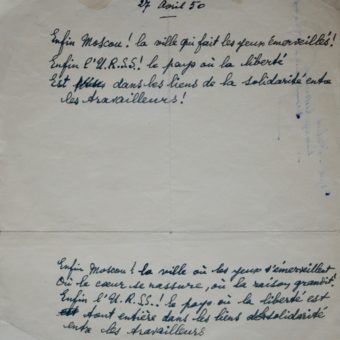 27 Avril 50
Enfin Moscou! la ville qui fait les yeux émerveillés!
Enfin l'U.R.S.S.! le pays où la liberté
Est dans les liens de la solidarité entre
les travailleurs!
Enfin Moscou! la ville où les yeux s'émerveillent
Où le cœur se rassure, où la raison grandit!
Enfin l'U.R.S.S.! le pays où la liberté est
est tout entière dans les liens de solidarité
entre les travailleurs